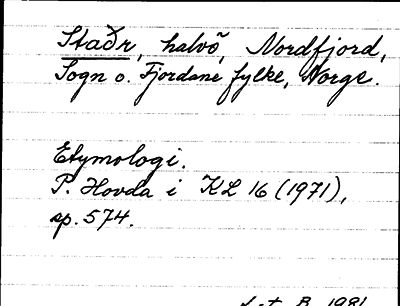 Staðr, halvö, Nordfjord,
Sogn o. Fjordane fylke, Norge.
Etymologi.
P. Hovda i KL 16 (1971),
sp. 574.
B. 1981